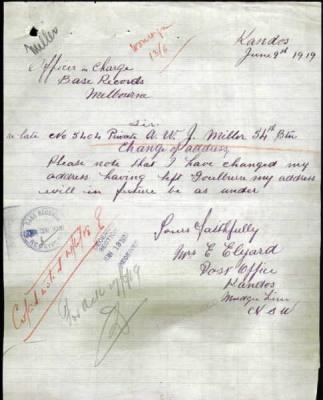 Miller
Kandos
June 9th 1919
Officer in Charge
Base Records
Melbourne
13/6
Sir
re late No 5404 Private A. W. J. Miller 54th Btn
Change of address
Please note that I have changed my
address having left Goulburn my address
will in future be as under
Yours Faithfully
Mrs E Elyard
Post Office
Kandos
Mudgee Line
N S W
BASE RECORDS